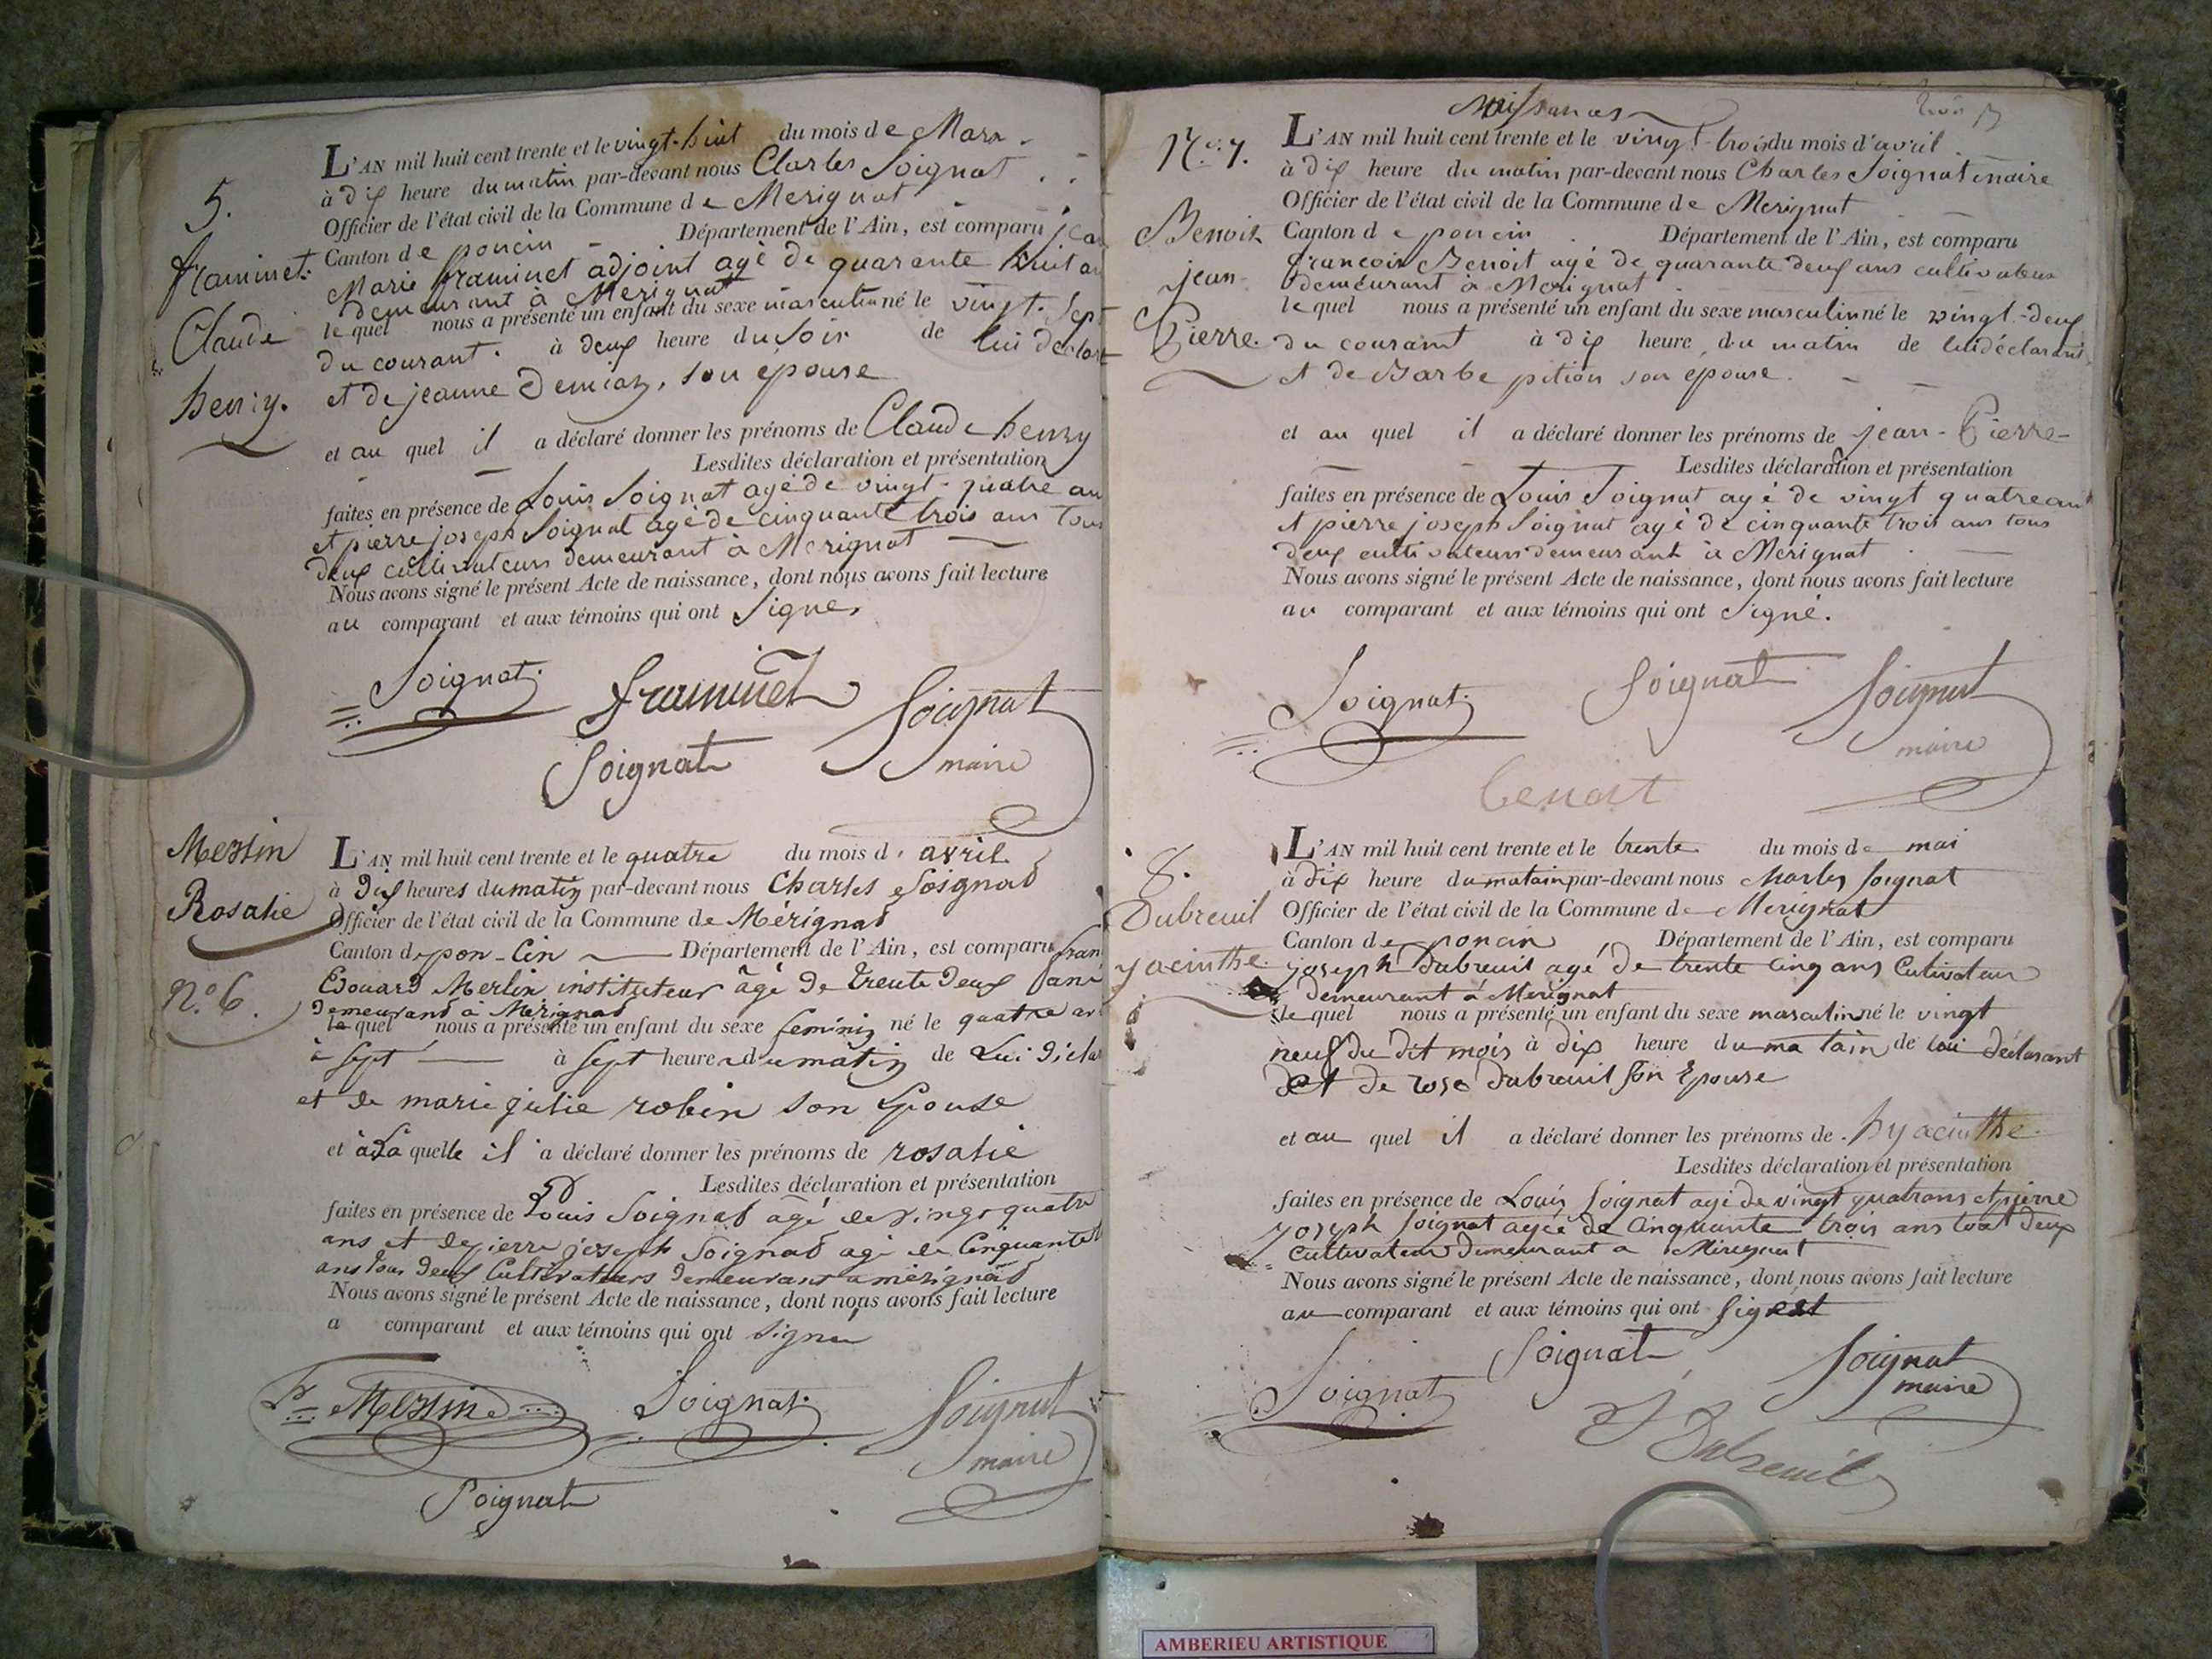 5.
framinet.
Claude
henry.
L'AN mil huit cent trente et le vingt-huit du mois de Mars
à dix heure du matin par-devant nous Charles Soignat
Officier de l'état civil de la Commune de Merignat
Canton de poncin Département de l'Ain, est comparu jean
Marie framinet adjoint agé de quarante huit an
demeurant à Merignat
le quel nous a présenté un enfant du sexe masculin né le vingt-sept
du courant. à deux heure du soir de lui déclart
et de jeanne son épouse
et au quel il a déclaré donner les prénoms de Claude henry
Lesdites déclaration et présentation
faites en présence de Louis Soignat agé de vingt-quatre an
et pierre joseph Soignat agé de cinquante trois ans tous
deux cultivateurs demeurant à Merignat
Nous avons signé le présent Acte de naissance, dont nous avons fait lecture
au comparant et aux témoins qui ont signé.
Soignat framinet Soignat
Soignat maire
Merlin
Rosalie
N.o 6.
L'AN mil huit cent trente et le quatre du mois d' avril
à dix heures du matin par-devant nous Charles Soignat
Officier de l'état civil de la Commune de Mérignat
Canton de pon-cin Département de l'Ain, est comparu fran
Edouard Merlin instituteur âgé de trente deux ans
demeurant à Mérignat
le quel nous a présenté un enfant du sexe feminin né le quatre
à sept à sept heures du matin de Lui décla
et de marie julie robin son Epouse
et à La quelle il a déclaré donner les prénoms de rosalie
Lesdites déclaration et présentation
faites en présence de Louis Soignat agé de vingt quatre
ans et de pierre joseph Soignat agé de Cinquante
ans tous deux Cultivateurs demeurant a mérignat
Nous avons signé le présent Acte de naissance, dont nous avons fait lecture
a comparant et aux témoins qui ont signé
Merlin Soignat Soignat
maire
Soignat
Naissances
N.o 7.
Benoit
jean-
Pierre.
L'AN mil huit cent trente et le vingt-trois du mois d'avril
à dix heure du matin par-devant nous Charles Soignat maire
Officier de l'état civil de la Commune de Merignat
Canton de poncin Département de l'Ain, est comparu
françois Benoit agé de quarante deux ans cultivateur
demeurant à Merignat
le quel nous a présenté un enfant du sexe masculin né le vingt-deux
du courant à dix heure du matin de lui déclarant
et de Barbe pition son épouse.
et au quel il a déclaré donner les prénoms de jean-Pierre-
Lesdites déclaration et présentation
faites en présence de Louis Soignat agé de vingt quatre ans
et pierre joseph Soignat agé de cinquante trois ans tous
deux cultivateurs demeurant à Merignat
Nous avons signé le présent Acte de naissance, dont nous avons fait lecture
au comparant et aux témoins qui ont signé.
Soignat Soignat Soignat
maire
benoit
8.
Dubreuil
yacinthe.
L'AN mil huit cent trente et le trente du mois de mai
à dix heure du matain par-devant nous Charles Soignat
Officier de l'état civil de la Commune de Merignat
Canton de poncin Département de l'Ain, est comparu
joseph Dubreuil agé de trente cinq ans Cutivateur
demeurant á Merignat
le quel nous a présenté un enfant du sexe masculin né le vingt
neuf du dit mois à dix heure du ma tain de lui déclarant
et de rose Dubreuil son Epouse
et au quel il a déclaré donner les prénoms de hyacinthe.
Lesdites déclaration et présentation
faites en présence de Louis Soignat agé de vingt quatrans et pierre
yoseph Soignat agée de Cinquante trois ans tout deux
Cultivateur demeurant a Merignat
Nous avons signé le présent Acte de naissance, dont nous avons fait lecture
au comparant et aux témoins qui ont
Soignat Soignat Soignat
maire
J Dubreuil
AMBERIEU ARTISTIQUE